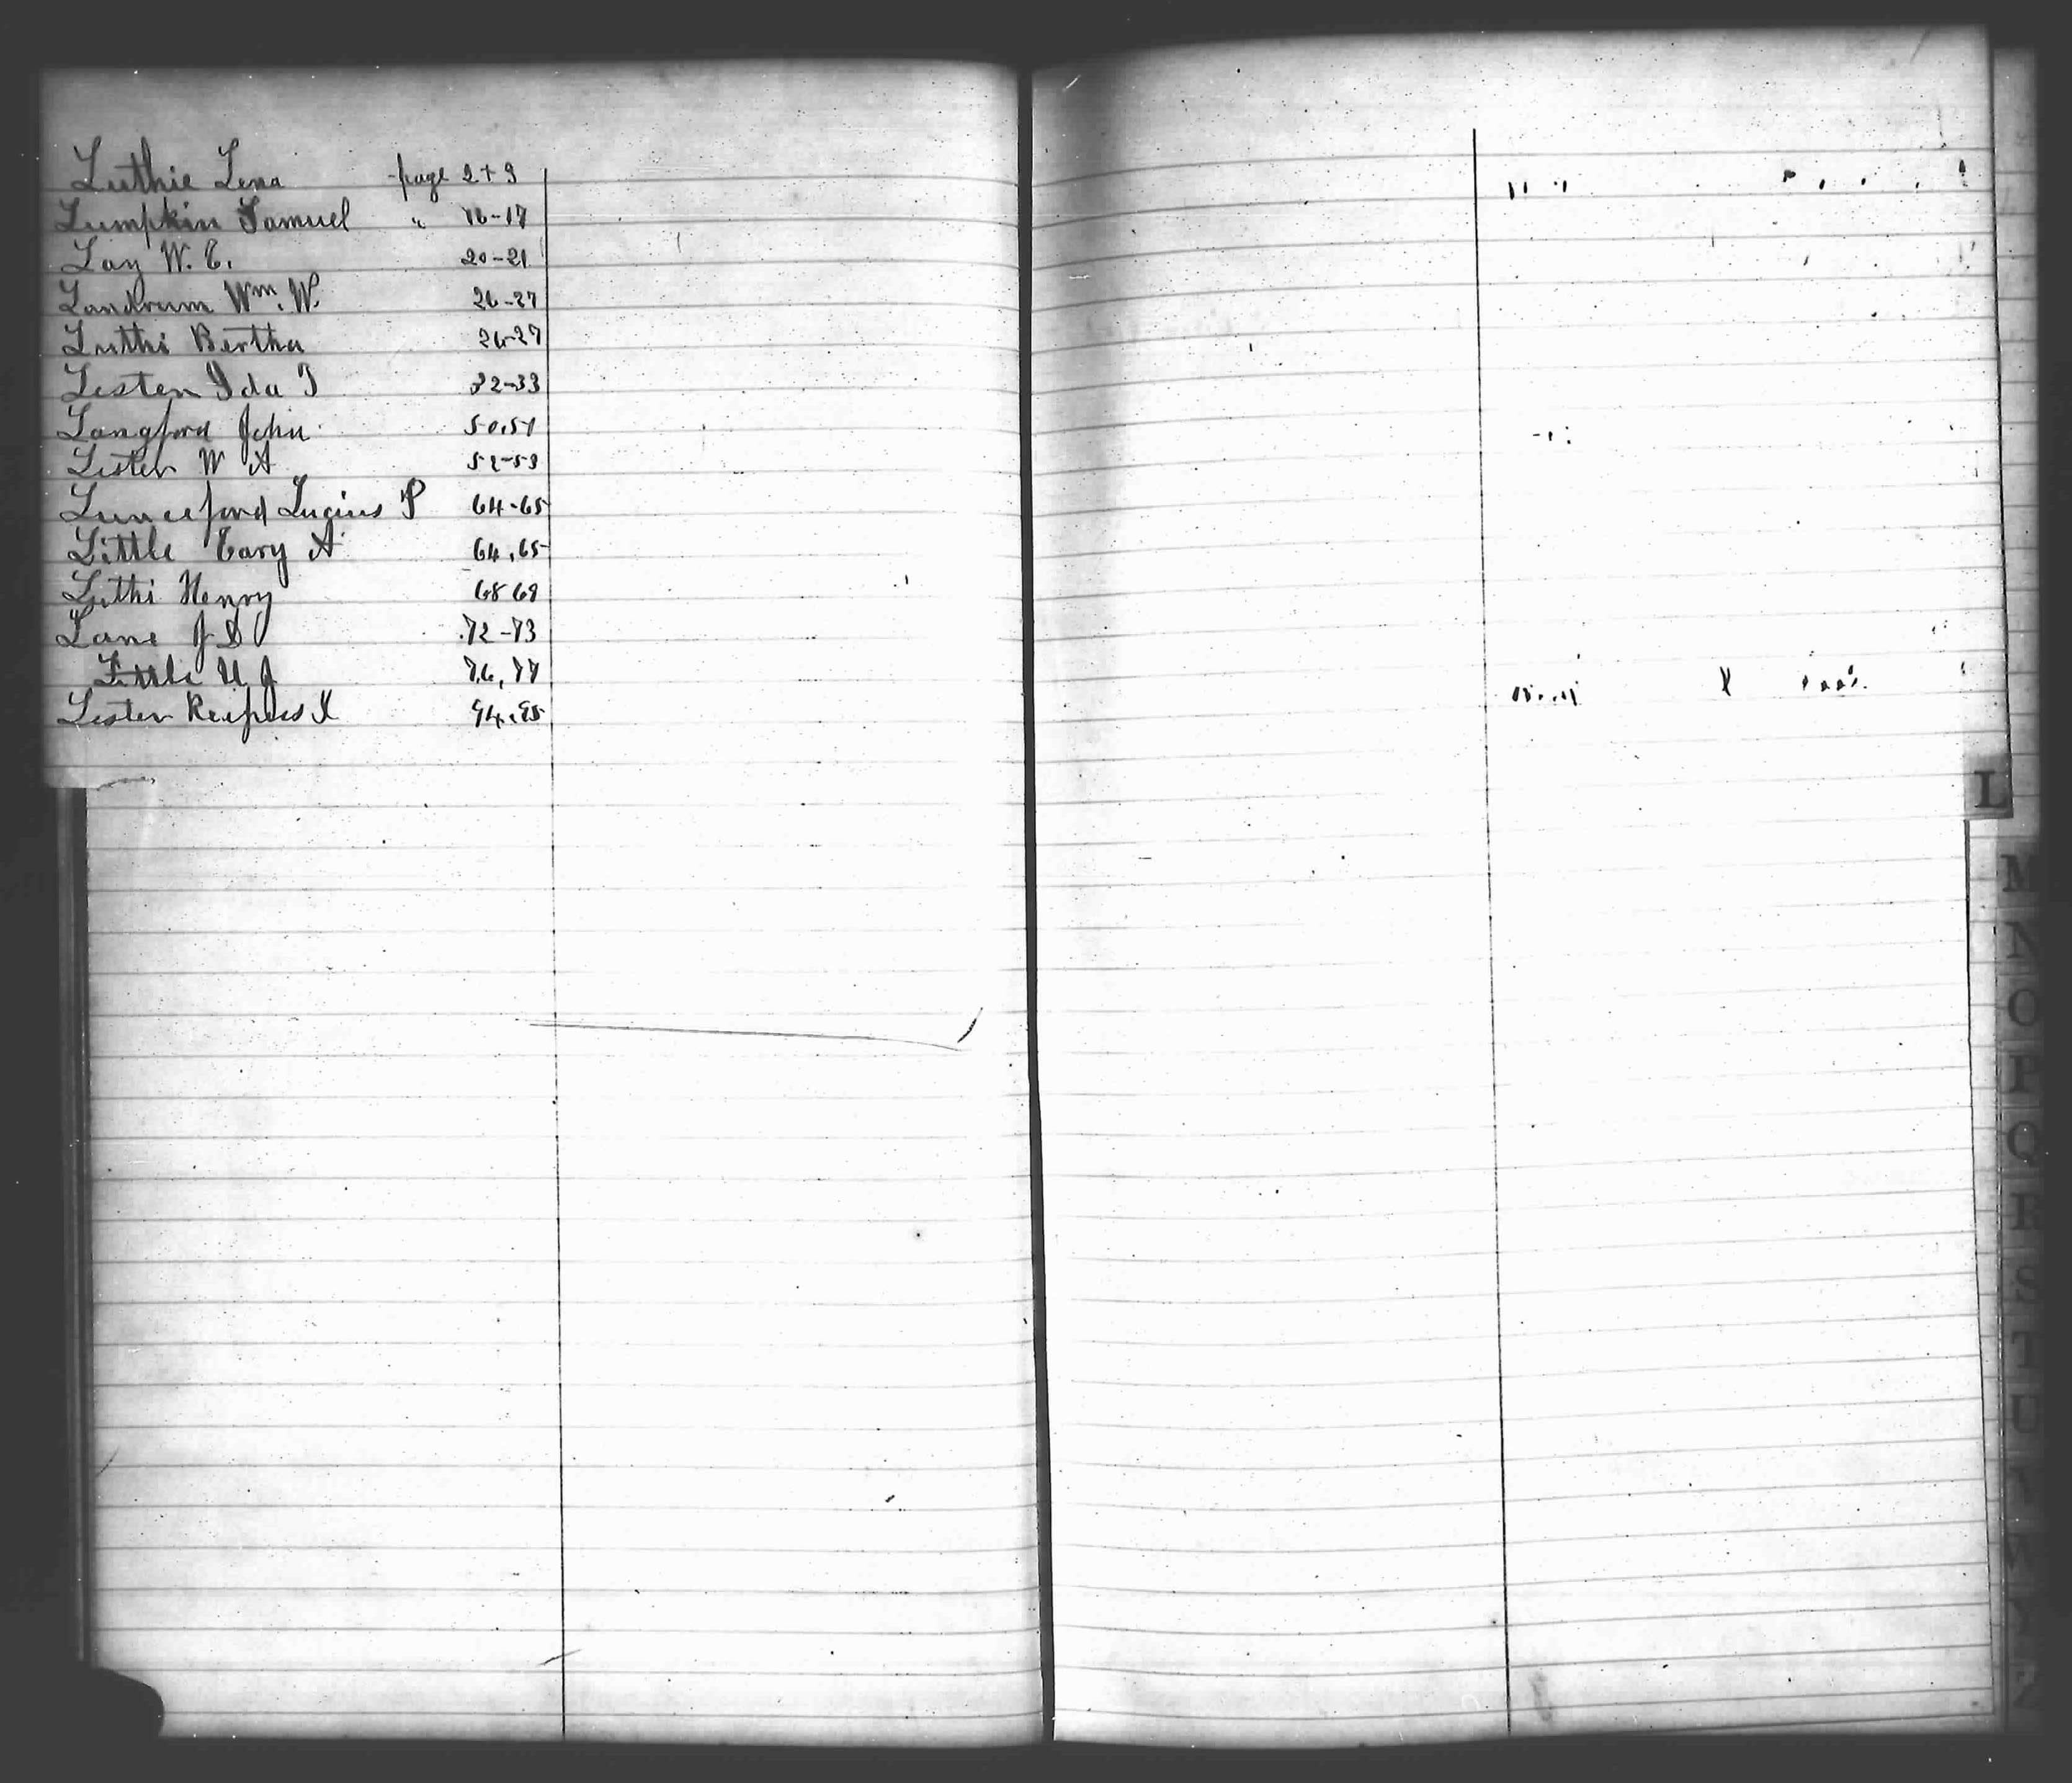 Luthie Lena page 2+3
Lumpkin Samuel " 16-17
Lay W. E. 20-21
Landrum Wm. W. 26-27
Luthi Bertha 26-27
Lester Ida J 32-33
Langford John 50,51
Lester W A 52-53
Lunceford Lucius P 64-65
Little Cary A 64,65
Luthi Henry 68 69
Lane J D 72-73
Little U J 76,77
Lester 94,95
L
M
N
O
P
Q
R
S
T
U
V
W
Y
Z